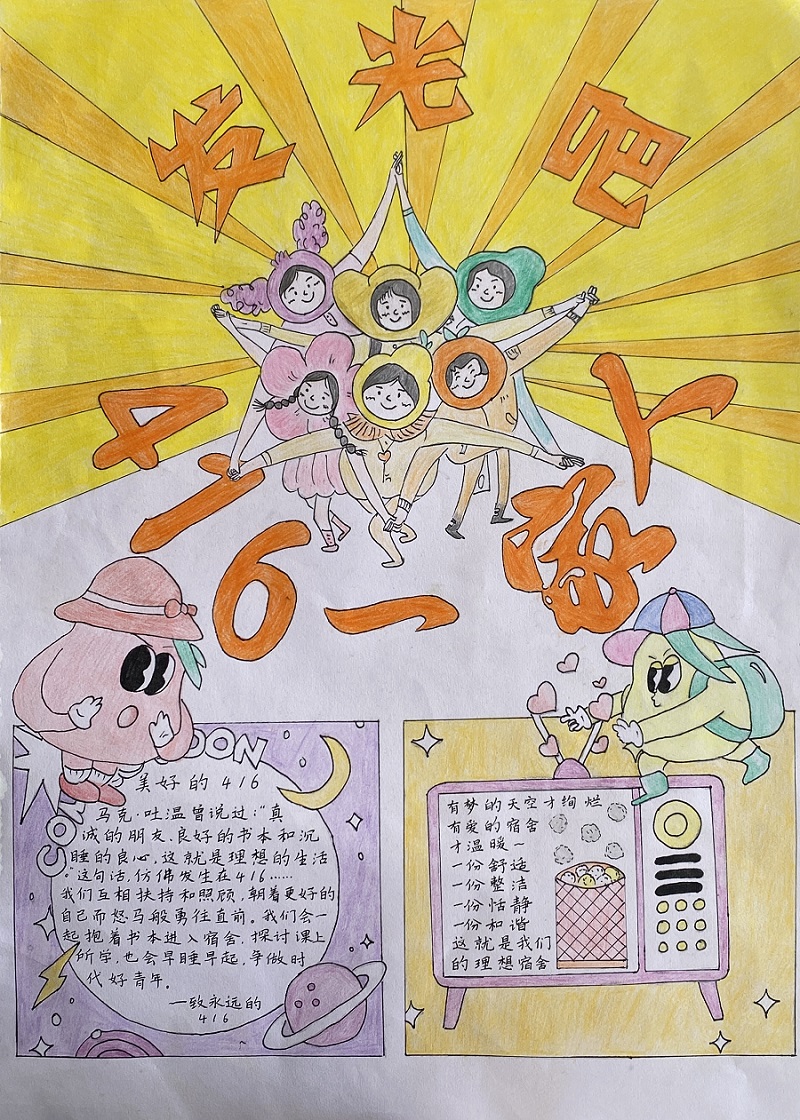 发光吧
416一家人
COM
OON
美好的416
马克·吐温曾说过:“真
诚的朋友、良好的书本和沉
睡的良心,这就是理想的生活
”这句话,仿佛发生在416……
我们互相扶持和照顾,朝着更好的
自己而怒马般勇往直前。我们会一
起抱着书本进入宿舍,探讨课上
所学,也会早睡早起,争做时
代好青年。
—致永远的
416
有梦的天空才绚烂
有爱的宿舍
才温暖~
一份舒适
一份整洁
一份恬静
一份和谐
这就是我们
的理想宿舍